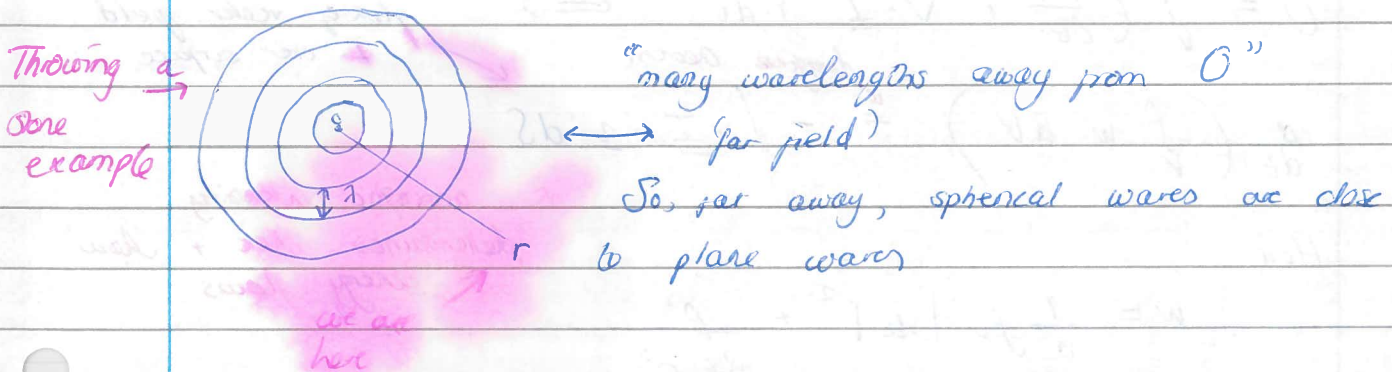 Throwing a
stone
example
λ
r
we are
here
"many wavelengths away from O"
(far field)
So, far away, spherical waves are close
to plane waves